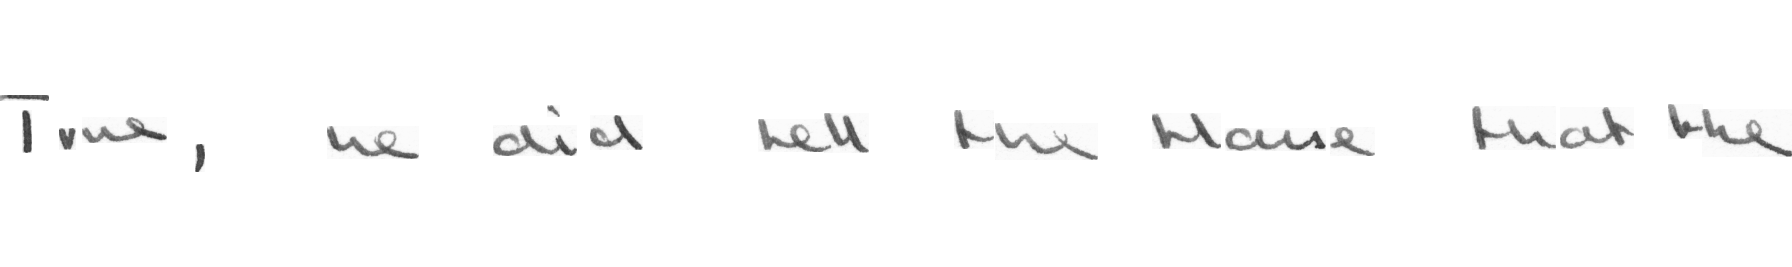 True, he did tell the House that the